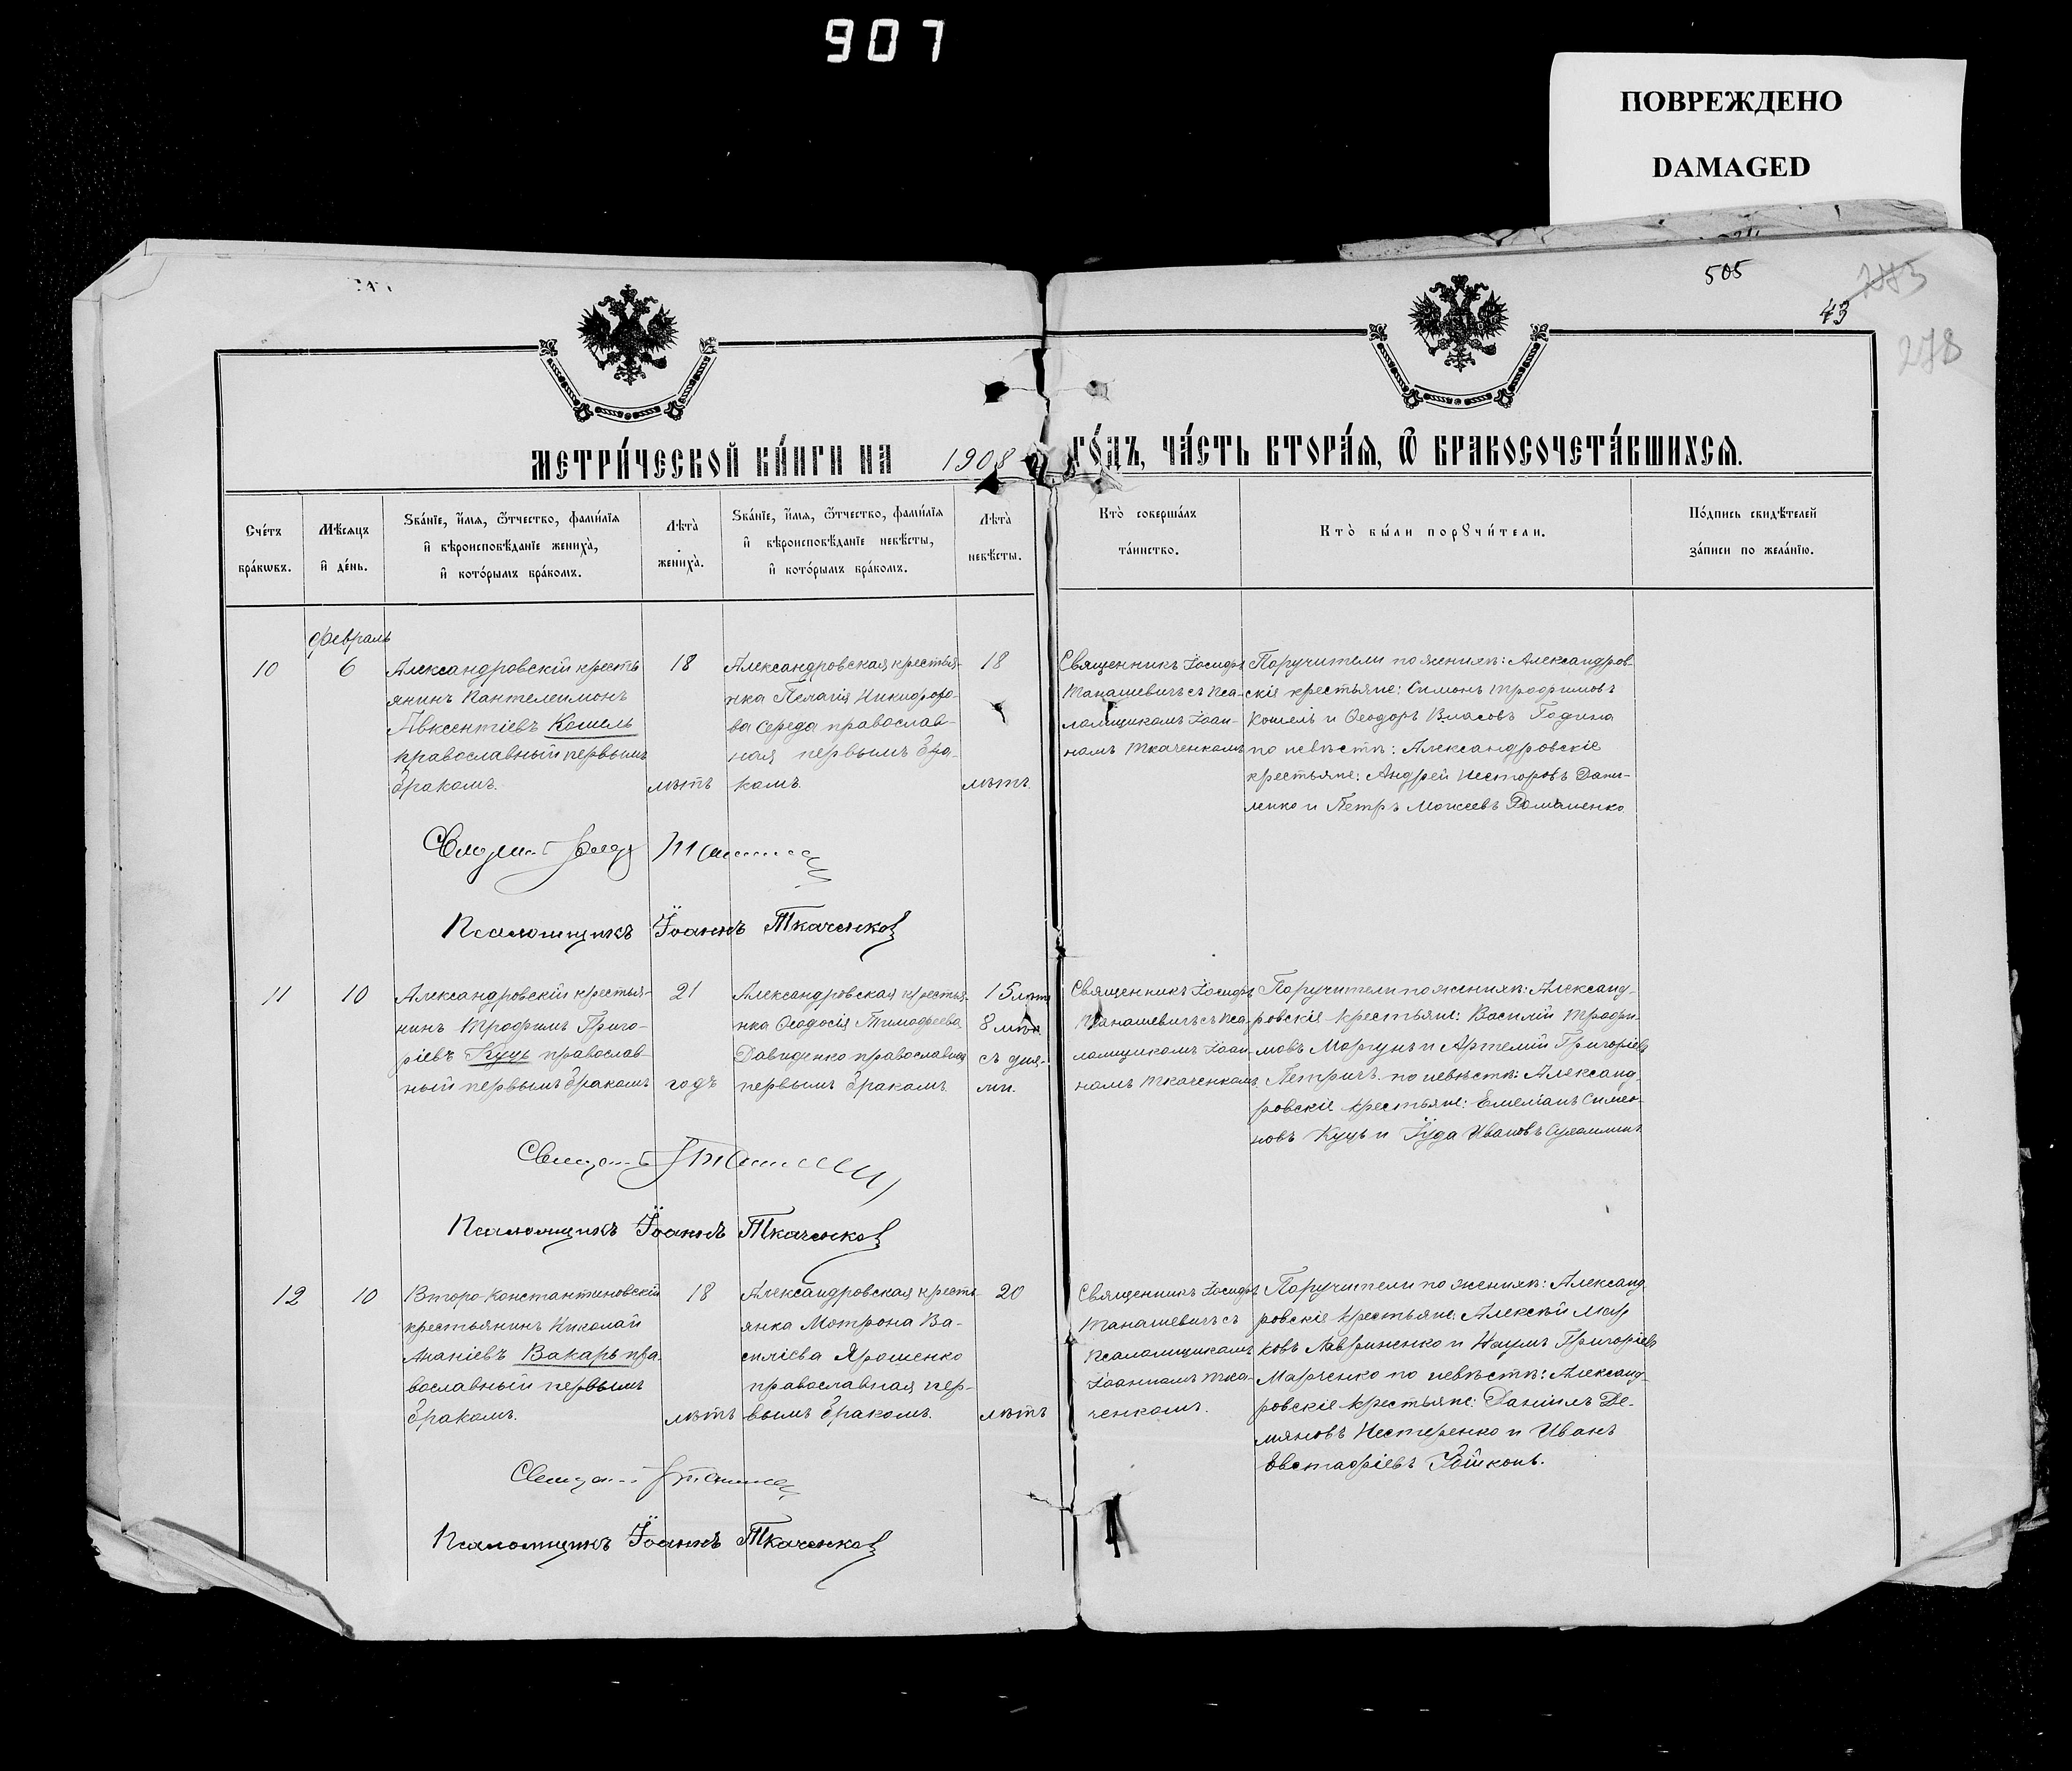 907
ПОВРЕЖДЕНО
DAMAGED
505
43
278
МЕТРИ́ЧЕСКОЙ КНИ́ГИ НА 1908 ГО́ДЪ, ЧА́СТЬ ВТОРА́Я, Ѿ БРАКОСОЧЕТА́ВШИХСЯ.
Сче́тъ
бра́кѡвъ.
Мѣ́сяцъ
и҆ де́нь.
Ѕва́нїе, и҆́мя, ѻ҆́тчество, фами́лїя
и҆ вѣроисповѣ́данїе жениха̀,
и҆ кото́рымъ бра́комъ.
Лѣта̀
жениха̀.
Ѕва́нїе, и҆́мя, ѻ҆́тчество, фами́лїя
и҆ вѣроисповѣ́данїе невѣ́сты,
и҆ кото́рымъ бра́комъ.
Лѣта̀
невѣ́сты.
Кто̀ соверша́лъ
та́инство.
Кто̀ бы́ли порꙋчи́тели.
По́дпись свидѣ́телей
за́писи по жела́нїю.
февраль
10
6
Александровскій кресть
янинъ Пантелеимонъ
Авксентіевъ Кошель
православный первымъ
бракомъ.
18
лѣтъ
Александровская крестья-
нка Пелагія Никифоро-
ва Середа православ-
ная первымъ бра-
комъ.
18
лѣтъ.
Священникъ Іосифъ
Танашевичъ съ пса-
ломщикомъ Іоан-
номъ Ткаченкомъ
Поручители по женихѣ: Александров-
скіе крестьяне: Симонъ Трофимовъ
Кошель и Ѳеодоръ Власовъ Година
по невѣстѣ: Александровскіе
крестьяне: Андрей Несторовъ Дани-
ленко и Петръ Моисеевъ Романенко
Псаломщикъ Іоаннъ Ткаченко
11
10
Александровскій крестья-
нинъ Трофимъ Григо-
ріевъ Куцъ православ-
ный первымъ бракомъ
21
годъ
Александровская крестья-
нка Ѳеодосія Тимофеева
Давиденко православная
первымъ бракомъ.
15 лѣтъ
8 мѣс.
съ дня-
ми.
Священникъ Іосифъ
Танашевичъ съ пса-
ломщикомъ Іоан-
номъ Ткаченкомъ.
Поручители по женихѣ: Александ-
ровскіе крестьяне: Василій Трофи-
мовъ Моргунъ и Артемій Григоріевъ
Петричъ. по невѣстѣ: Александ-
ровскіе крестьяне: Емеліанъ Симео-
новъ Куцъ и Іуда Ивановъ Сухомлинъ
Псаломщикъ Іоаннъ Ткаченко
12
10
Второ-Константиновскій
крестьянинъ Николай
Ананіевъ Вакарь пра-
вославный первымъ
бракомъ.
18
лѣтъ
Александровская кресть-
янка Мотрона Ва-
силіева Ярошенко
православная пер-
вымъ бракомъ.
20
лѣтъ
Священникъ Іосифъ
Танашевичъ съ
псаломщикомъ
Іоанномъ Тка-
ченкомъ.
Поручители по женихѣ: Александ-
ровскіе крестьяне: Алексѣй Мар
ковъ Лавриненко и Наумъ Григоріевъ
Марченко по невѣстѣ: Александ-
ровскіе крестьяне: Даніилъ Де-
мяновъ Нестеренко и Иванъ
Евстафіевъ
Псаломщикъ Іоаннъ Ткаченко